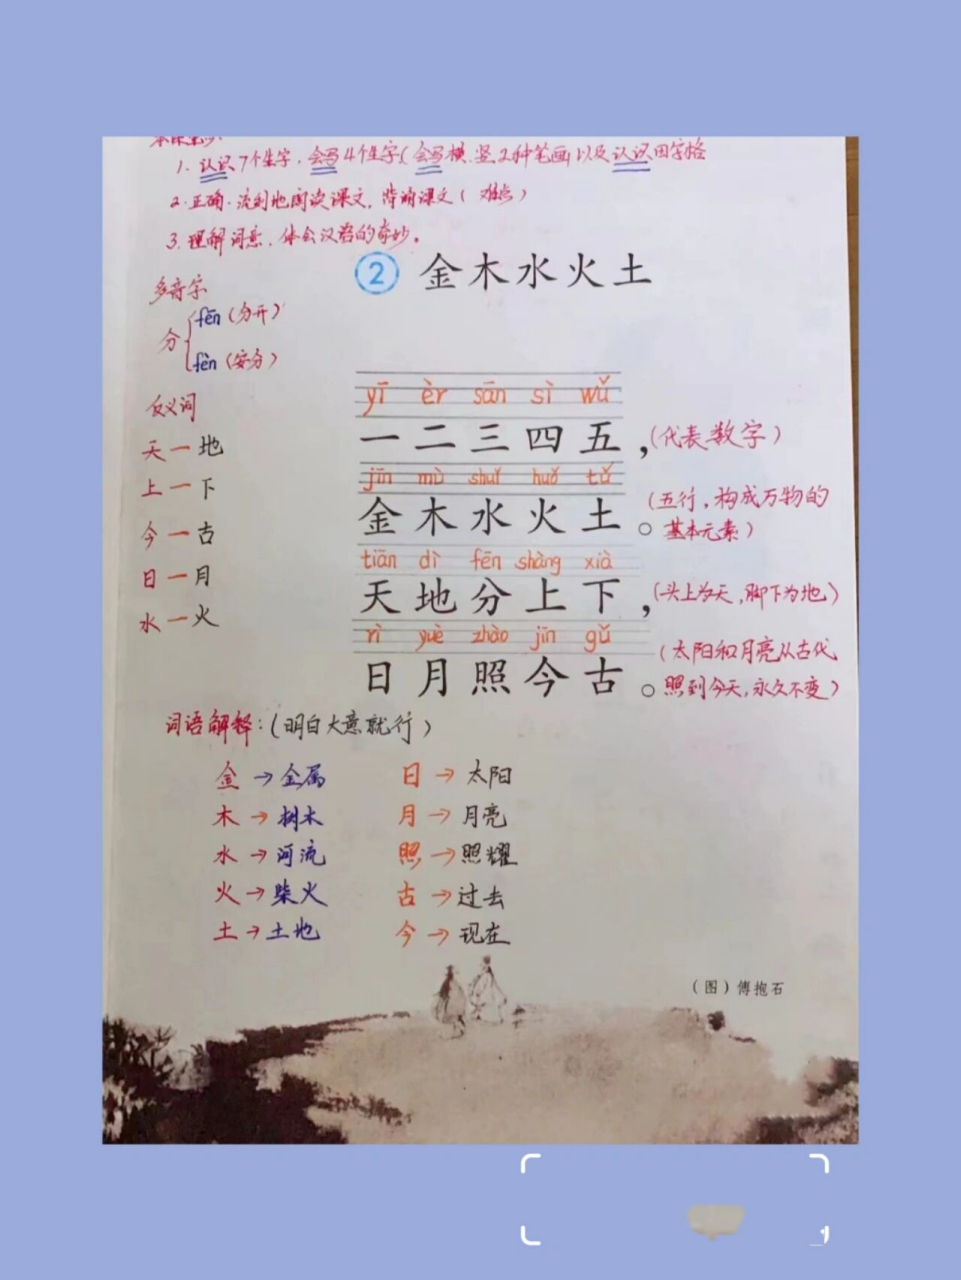 本课重点:
1. 认识7个生字,会写4个生字(会写横、竖2种笔画)以及认识田字格
2. 正确、流利地阅读课文,背诵课文(难点)
3. 理解词意,体会汉语的奇妙。
② 金木水火土
多音字
分 fēn (分开)
fèn (安分)
反义词
天一地
上一下
今一古
日一月
水一火
yī èr sān sì wǔ
一二三四五,(代表数字)
jīn mù shuǐ huǒ tǔ
金木水火土。(五行,构成万物的
基本元素)
tiān dì fēn shàng xià
天地分上下,(头上为天,脚下为地)
rì yuè zhào jīn gǔ
日月照今古。(太阳和月亮从古代
照到今天,永久不变)
词语解释:(明白大意就行)
金→金属 日→太阳
木→树木 月→月亮
水→河流 照→照耀
火→柴火 古→过去
土→土地 今→现在
(图)傅抱石